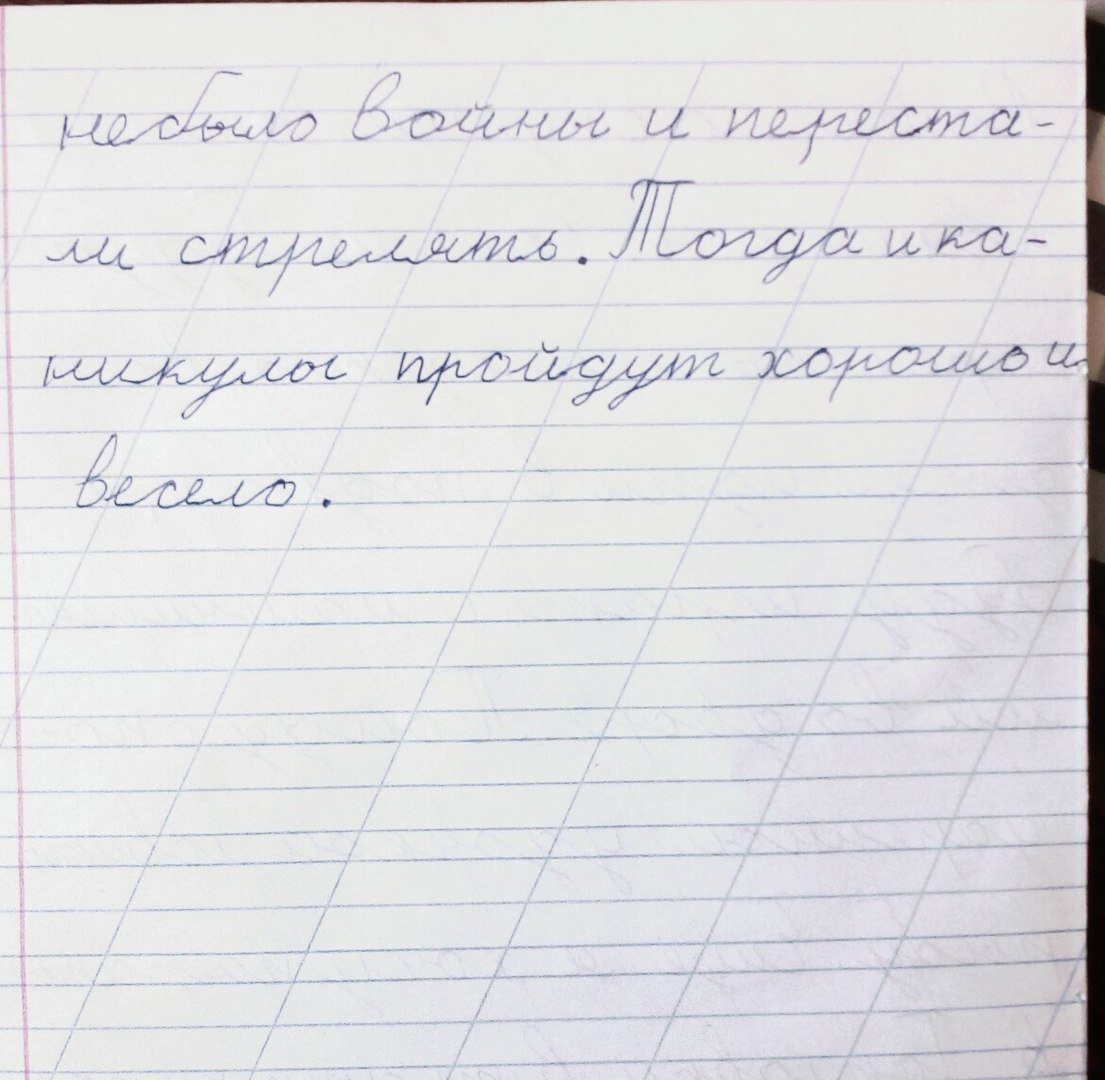 небыло войны и переста-
ли стрелять. Тогда и ка-
никулы пройдут хорошо и
весело.